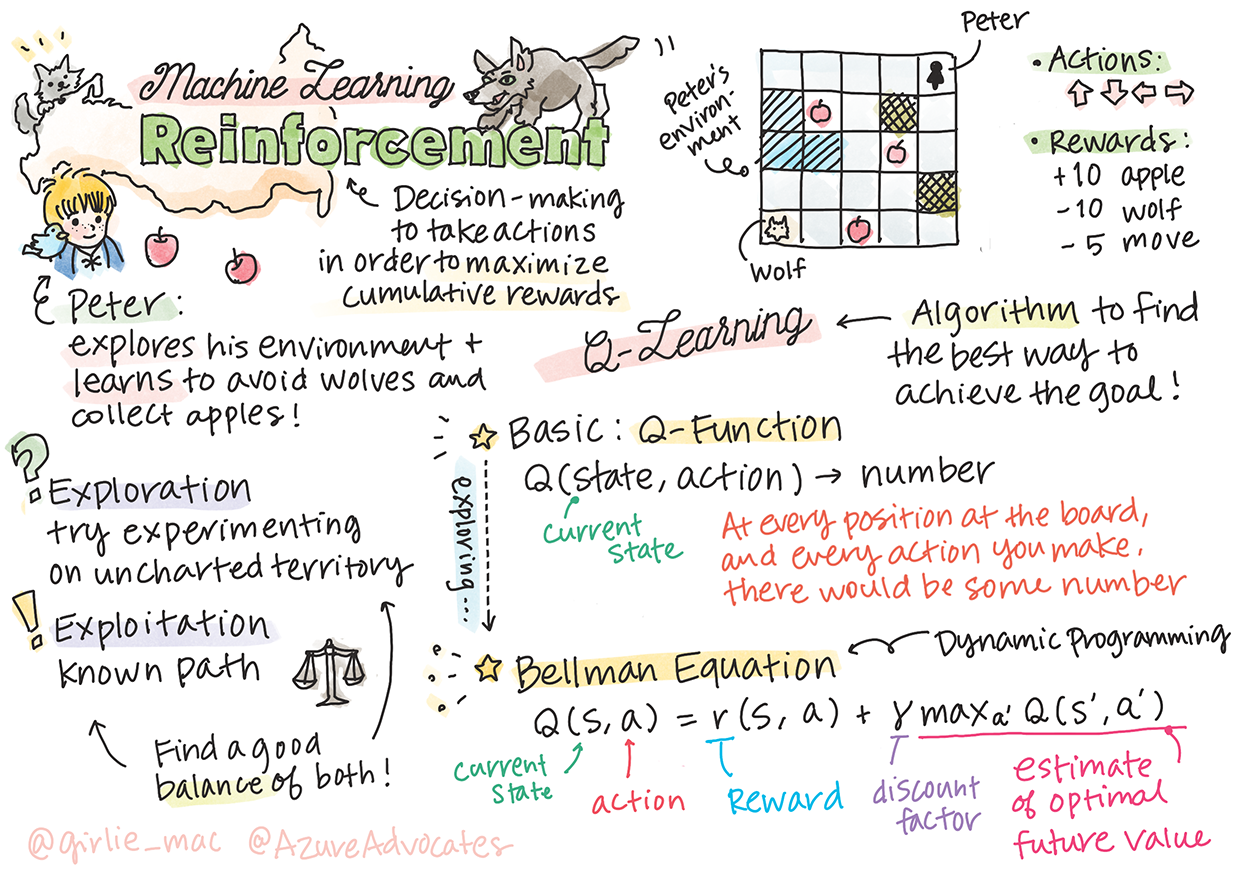 Machine Learning
Reinforcement
Decision-making
to take actions
in order to maximize
cumulative rewards
Peter:
explores his environment +
learns to avoid wolves and
collect apples!
Peter
Peter's
environ-
ment
wolf
• Actions:
• Rewards:
+10 apple
-10 wolf
-5 move
Q-Learning
Algorithm to find
the best way to
achieve the goal!
? Exploration
try experimenting
on uncharted territory
! Exploitation
known path
Find a good
balance of both!
exploring...
Basic: Q-Function
Q(state, action) → number
current
state
At every position at the board,
and every action you make,
there would be some number
Bellman Equation
Dynamic Programming
Q(s, a) = r(s, a) + γ maxₐ' Q(s', a')
current
state
action
Reward
discount
factor
estimate
of optimal
future value
@girlie_mac @AzureAdvocates